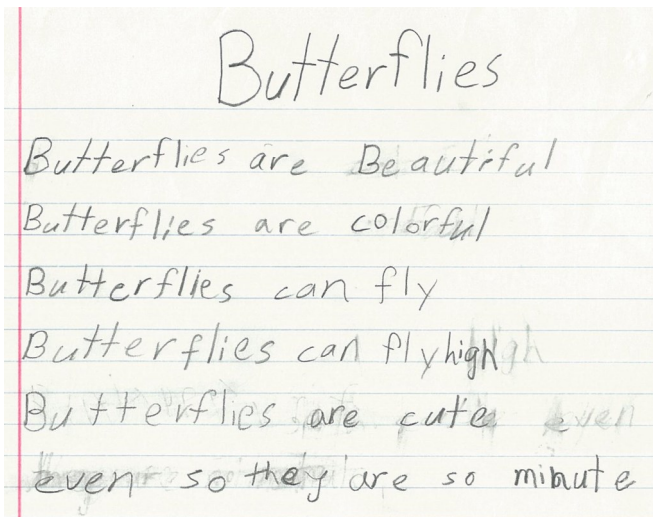 Butterflies
Butterflies are Beautiful
Butterflies are colorful
Butterflies can fly
Butterflies can fly high
Butterflies are cute even
even so they are so minute